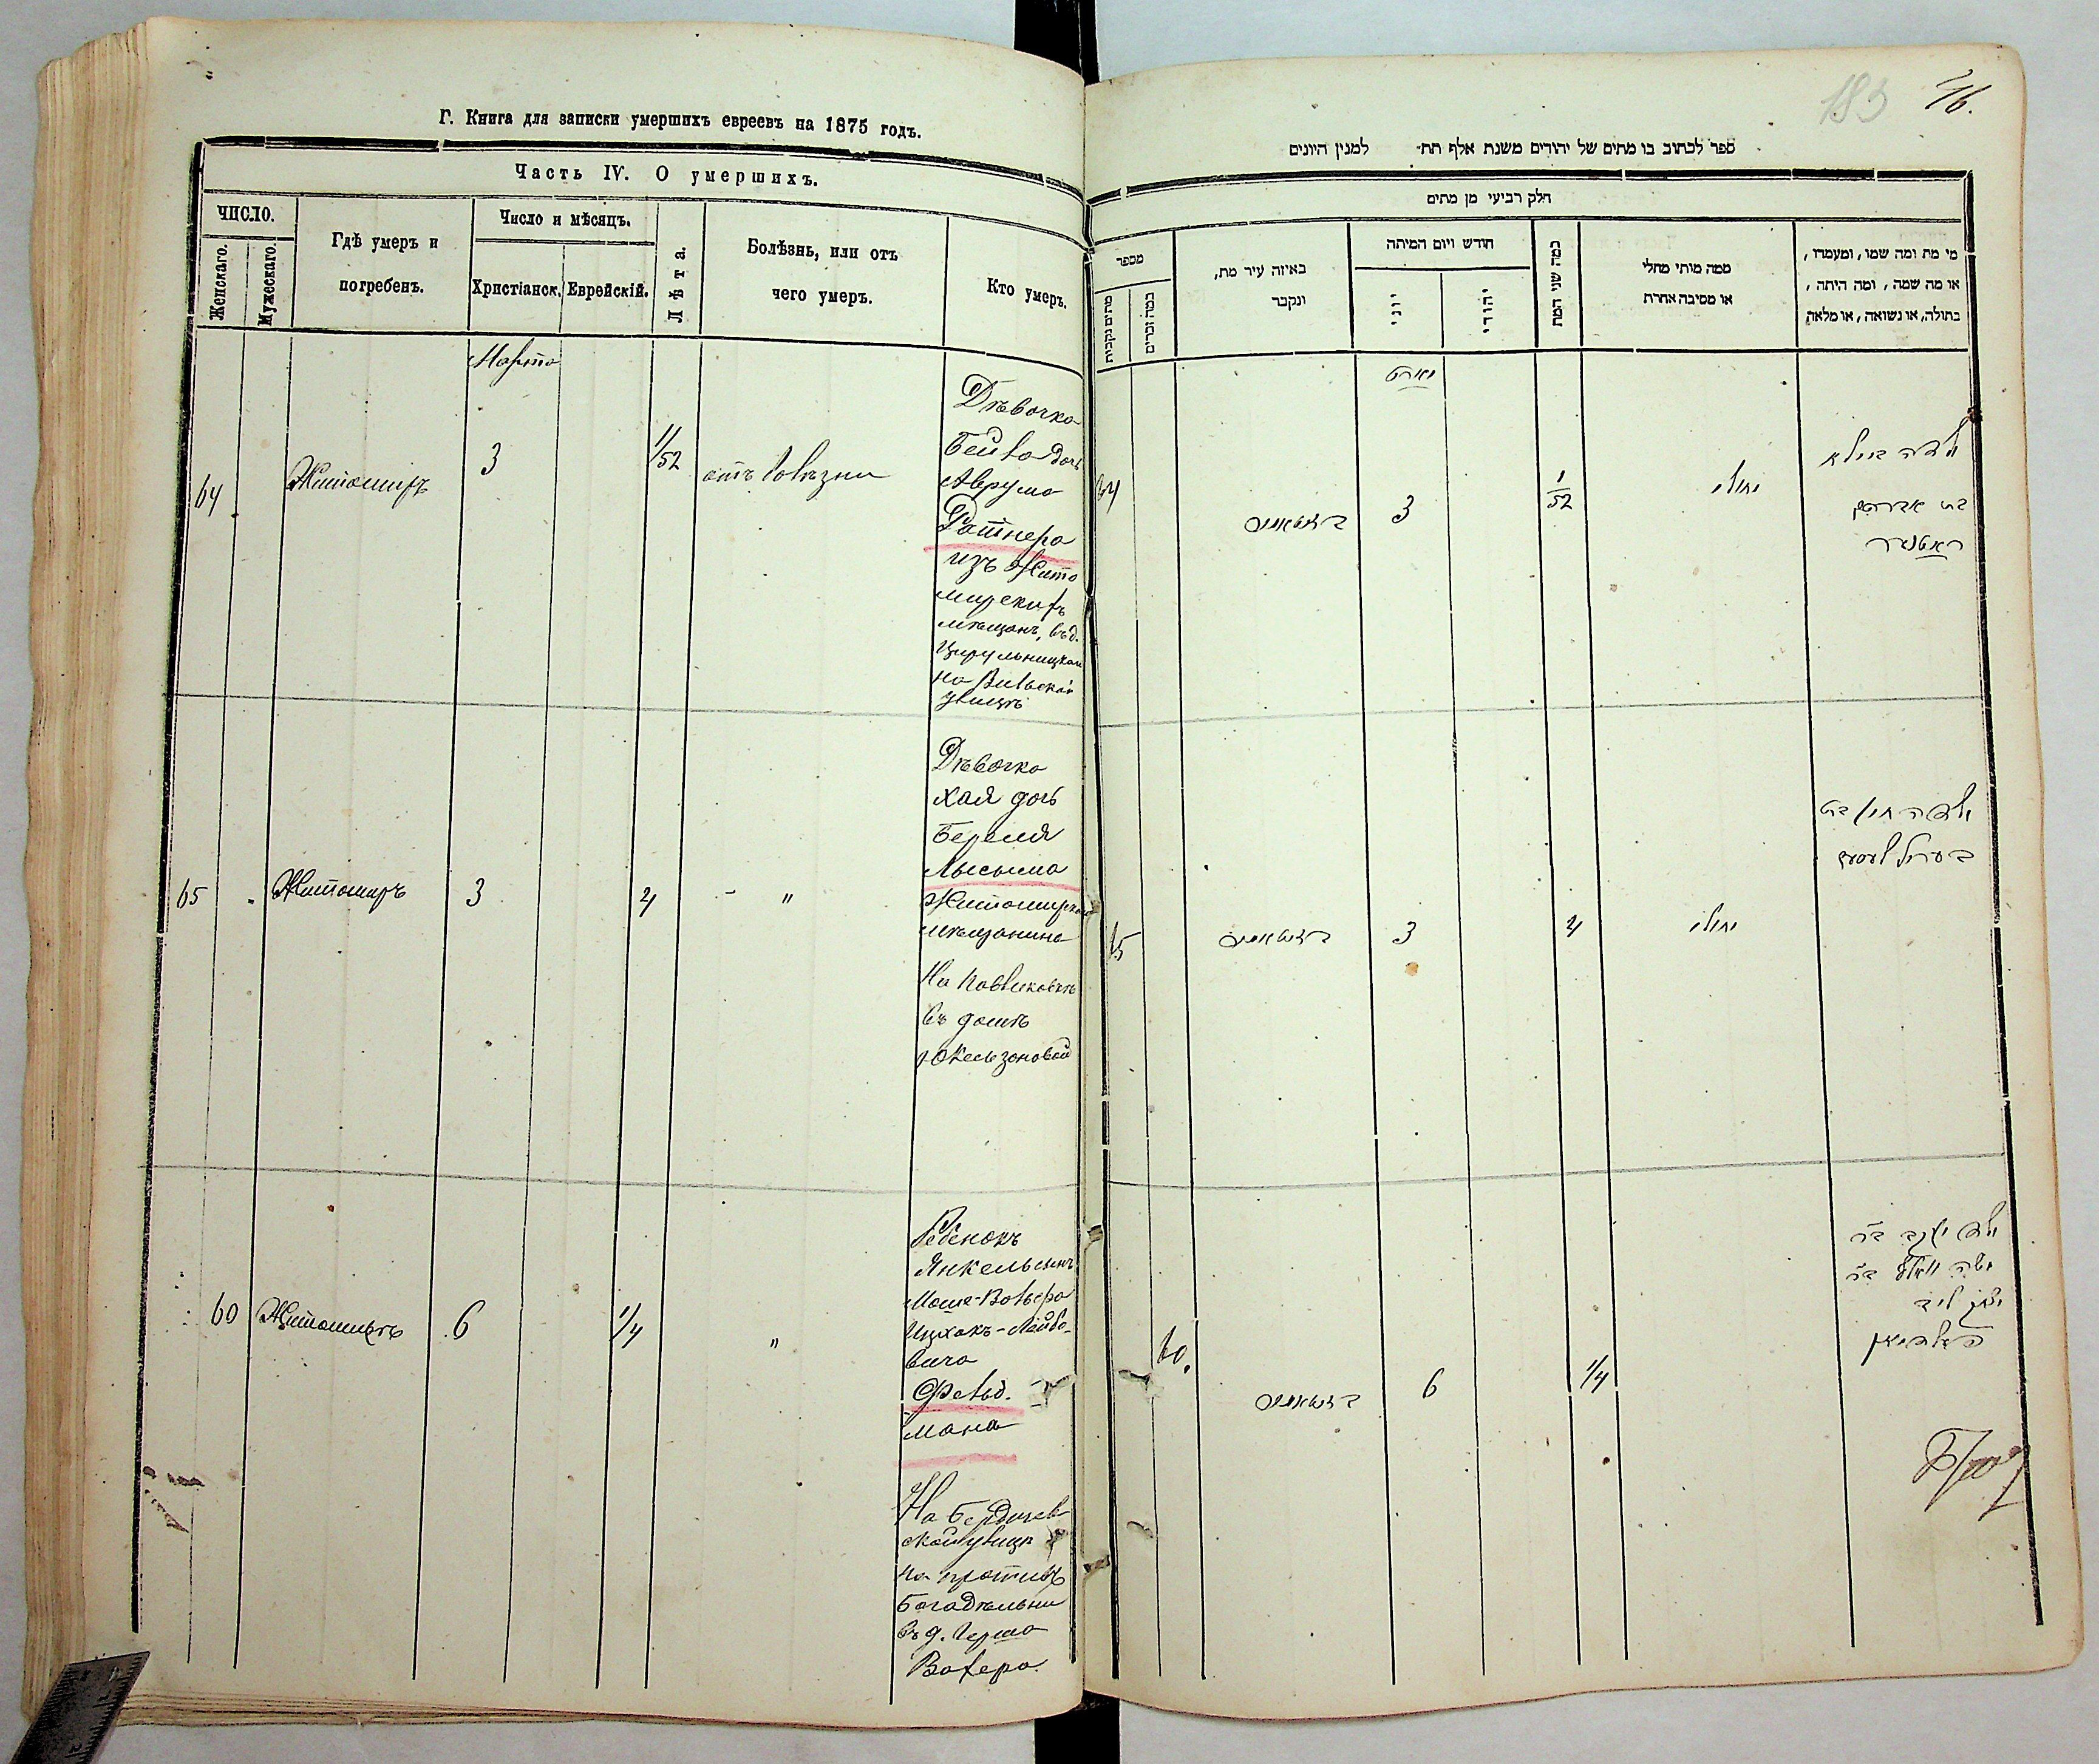 Г. Книга для записки умершихъ евреевъ на 1875 годъ.
Часть IV. О умершихъ.
ЧИСЛО.
Женскаго.
Мужескаго.
Гдѣ умеръ и
погребенъ.
Число и мѣсяцъ.
Христіанск.
Еврейскій.
Лѣта.
Болѣзнь, или отъ
чего умеръ.
Кто умеръ.
Марта
64
Житомиръ
3
1/52
отъ болѣзни
Дѣвочка
Бейла дочь
Аврума
Ратнера
изъ Жито
мирскихъ
мѣщанъ, въ д.
Цирульницкой
на Вильской
улицѣ
65
Житомиръ
3
4
- "
Дѣвочка
Хая дочь
Береля
Лысыма
Житомирскаго
мѣщанина
На Павликовкѣ
въ домѣ
60
Житомиръ
6
1/4
"
Ребенокъ
Янкель сынъ
Моше-Вольфа
Ицхакъ-Лейбо-
вича
Фельд-
мана
На Бердичев-
ской улицѣ
на противъ
Богадѣльни
въ д. Герша
183
76.
ספר לכתוב בו מתים של יהודים משנת אלף תת למנין היונים
חלק רביעי מן מתים
מספר
מתים נקבות
כמה זכרים
באיזה עיר מת,
ונקבר
חודש ויום המיתה
יוני
יהודי
כמה שני המת
ממה מותי מחלי
או מסיבה אחרת
מי מת ומה שמו, ומעמדו,
או מה שמה, ומה היתה,
בתולה, או נשואה, או מלאה
מארט
64
בזיטאמיר
3
1/52
מחולי
ילדה ביילא
בת אברהם
ראטנער
65
בזיטאמיר
3
4
מחולי
ילדה חי' בת
בעריל
60.
בזיטאמיר
6
1/4
ילד יעקב בר
משה וואלף בר
יצחק ליב
פעלדמאן